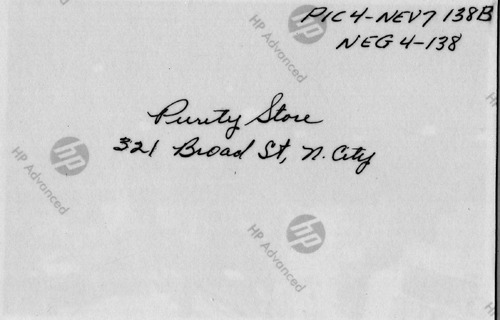 PIC 4-NEV7 138B
NEG 4-138
hp
HP Advanced
Purity Store
321 Broad St, N. City
hp
HP Advanced
hp
HP Advanced